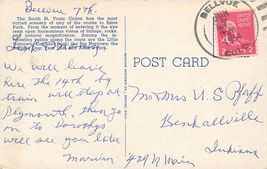 Bellvue 7th.
The South St. Vrain Cañon has the most
varied scenery of any of the routes to Estes
Park. From the moment of entering it the eye
rests upon harmonious vistas of foliage, rocks
and natural magnificence. Among the in-
teresting points along the route are the Little
Narrows, the Big Narrows; the
We will leave
here the 14th by
train will stop at
Plymouth, then go
on to Dorothys
will see you later
Marvin
POST CARD
BELLVUE
Mr + Mrs U. S. Pfaff
Benhallville
429 N Main
Indiana